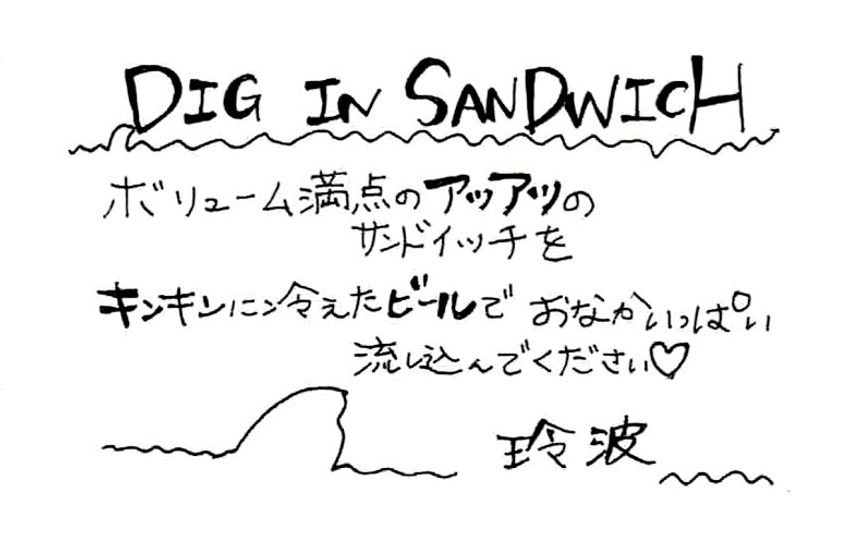 DIG IN SANDWICH
ボリューム満点のアツアツの
サンドイッチを
キンキンに冷えたビールで おなかいっぱい
流し込んでください♡
玲波